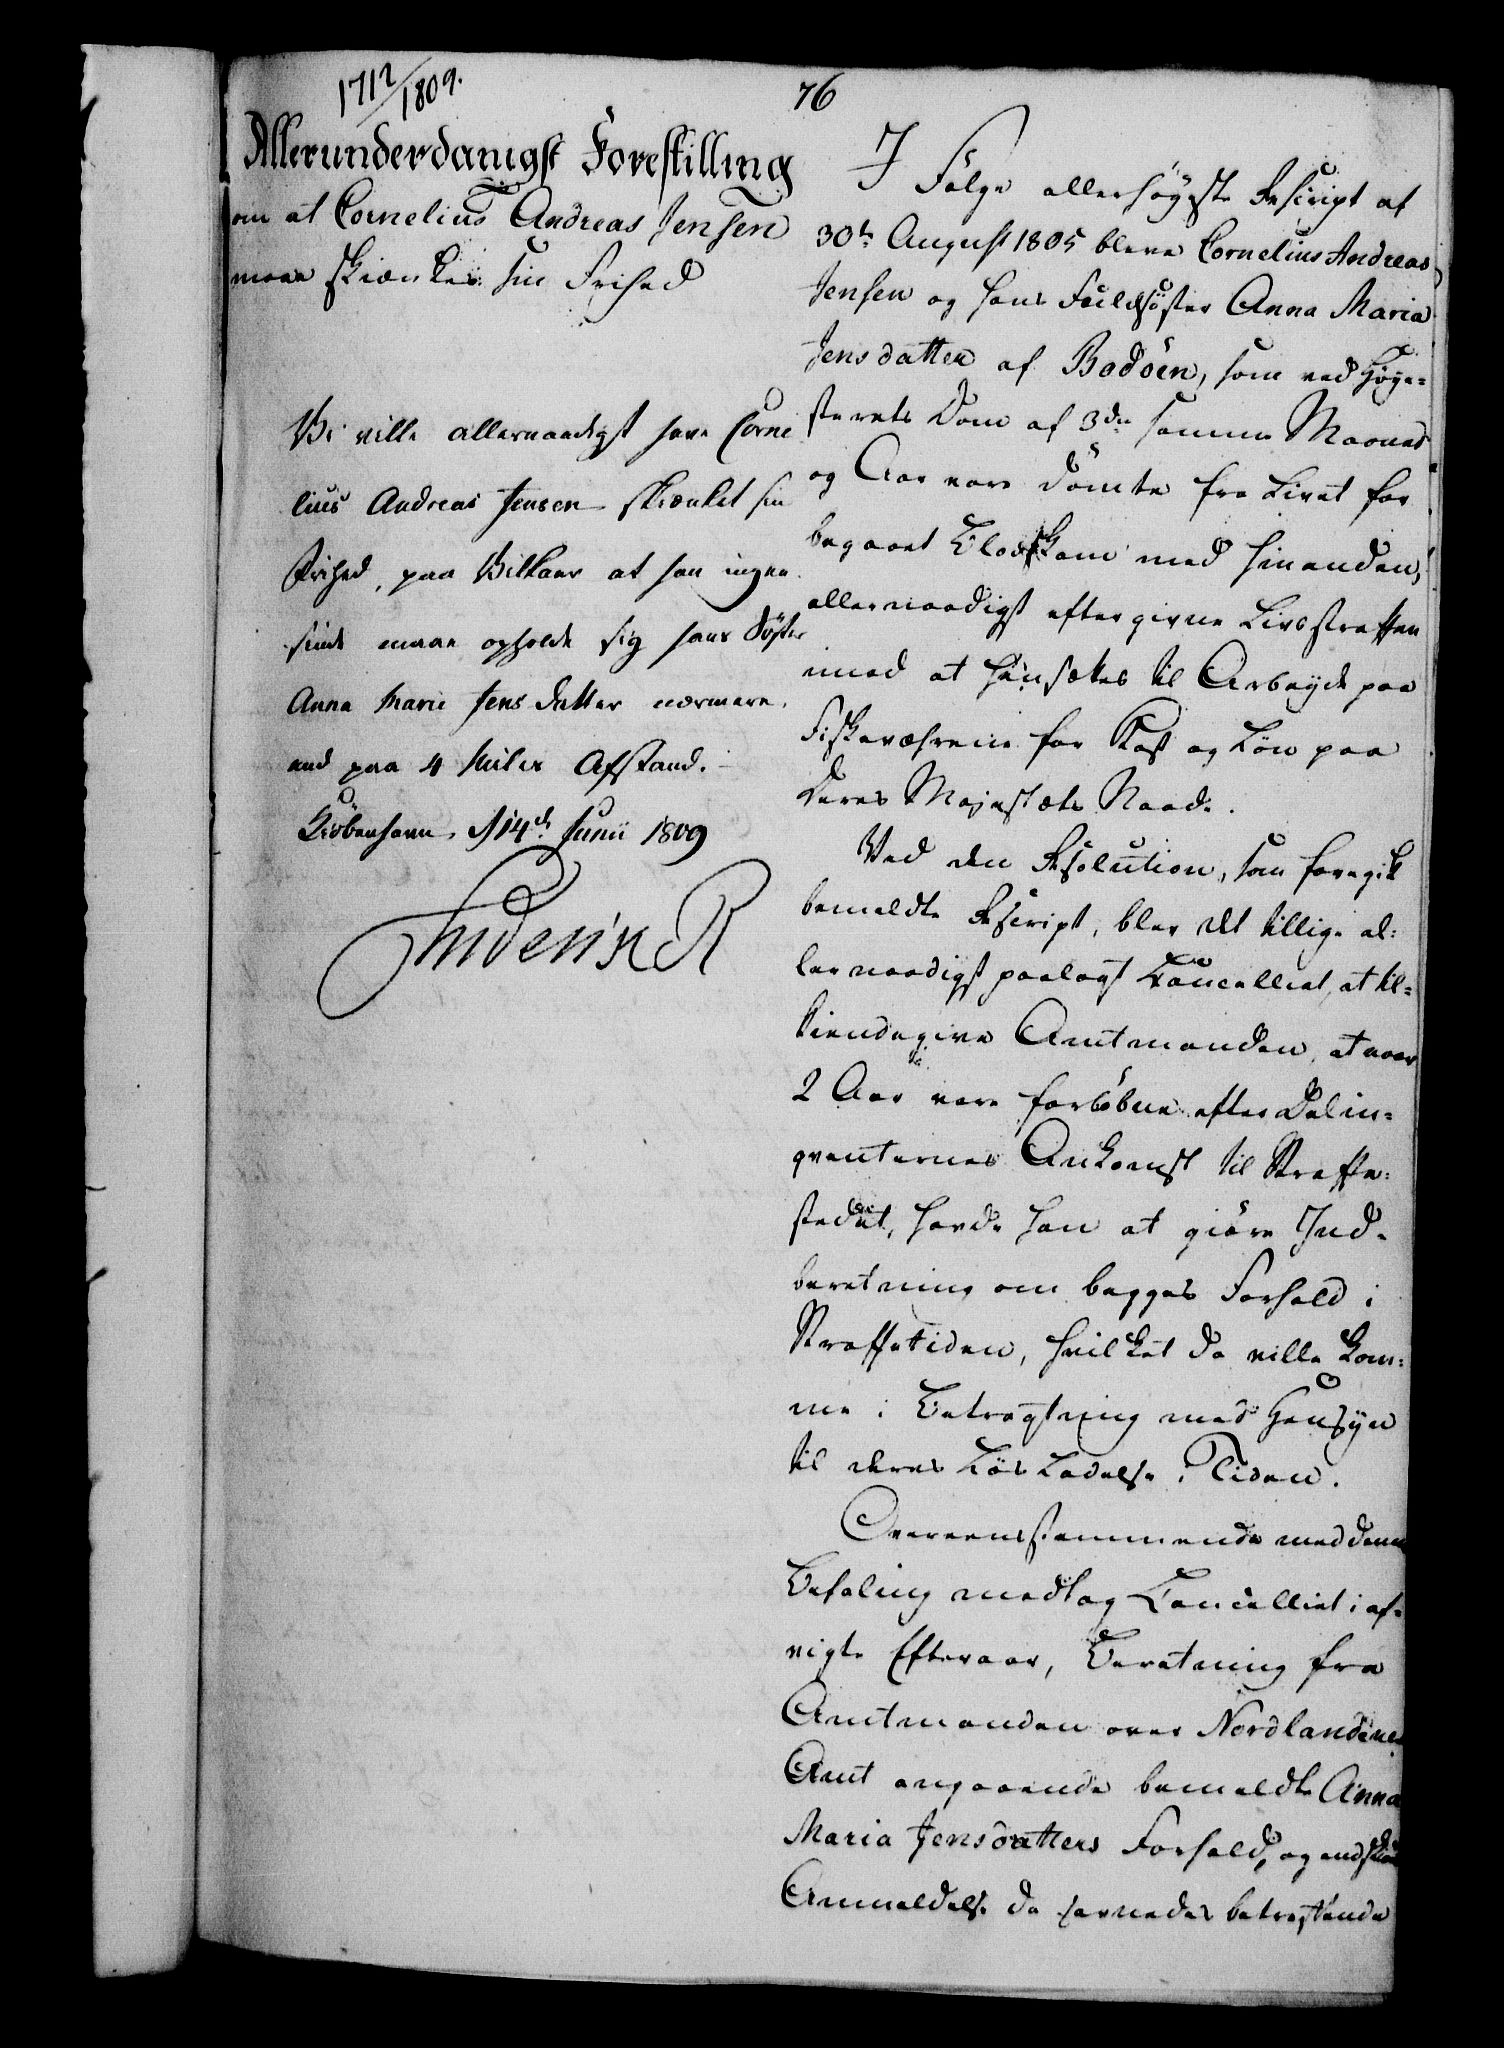 1712/1809.
76
Allerunderdanigst Forestilling
om at Cornelius Andreas Jensen
maae skiænkes sin Frihed
Vi ville allernaadigst have Corne
lius Andreas Jensen skienket sin
Frihed, paa Vilkaar at han ingen
sinde maae opholde sig hans Søster
Anna Marie Jens datter nærmere,
end paa 4 Miles Afstand.
Kiöbenhavn, d 14de Junii 1809
Friderich R
I Fölge allerhöyeste Rescript af
30te August 1805 bleve Cornelius Andreas
Jensen og hans Fuldsöster Anna Maria
Jensdatter af Bodöen, som ved Höye=
sterets Dom af 3die samme Maaned
og Aar vare dömte fra Livet for
begaaet Blodskam med hinanden,
allernaadigst eftergivne Livsstraffen
imod at hensættes til Arbeyde paa
Fiskeværene for Kost og Lön paa
Deres Majestæts Naade.
Ved den Resolution, som foregik
bemeldte Rescript, blev det tillige al=
lernaadigst paalagt Cancelliet, at til=
kiendegive Amtmanden, at naar
2 Aar vare forlöbne efter Delin=
qventernes Ankomst til Straffe=
stedet, havde han at giöre Ind=
beretning om begges Forhold i
Straffetiden, hvilket da ville kom=
me i Betragtning med Hensyn
til deres Lösladelse i Tiden.
Overeensstemmende med denne
Befaling modtog Cancelliet i af=
vigte Efteraar, Beretning fra
Amtmanden over Nordlandenes
Amt angaaende bemeldte Anna
Maria Jensdatters Forhold, og endskiönt
Anmeldelse da savnedes betræffende